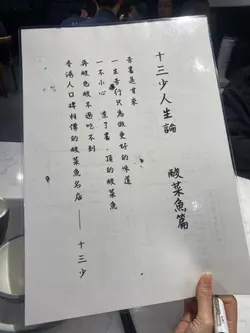 十三少人生論　酸菜魚篇
苦盡是甘來
一生苦行只為做更好的味道
一不小心　了　頂的酸菜魚
再酸也酸不過吃不到
香港人口碑相傳的酸菜魚名店——十三少